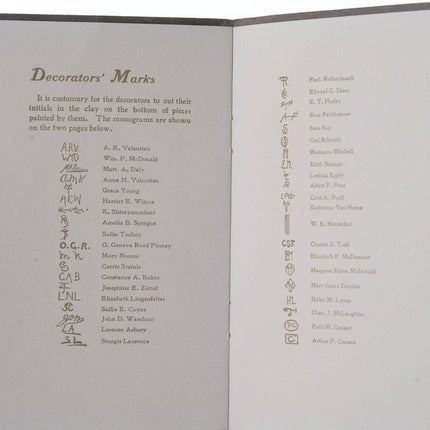 Decorators' Marks
It is customary for the decorators to cut their
initials in the clay on the bottom of pieces
painted by them. The monograms are shown
on the two pages below.
A.R.V. A. R. Valentien
Wm. P. McDonald
Matt. A. Daly
A.M.V. Anna M. Valentien
Grace Young
H.E.W. Harriet E. Wilcox
K. Shirayamadani
Amelia B. Sprague
Sallie Toohey
O.G.R. O. Geneva Reed Pinney
M N Mary Nourse
Carrie Steinle
CAB Constance A. Baker
Josephine E. Zettel
LNL Elizabeth Lingenfelter
Sallie E. Coyne
John D. Wareham
LA Leonore Asbury
SL Sturgis Laurence
Fred. Rothenbusch
Edward G. Diers
E. T. Hurley
Rose Fechheimer
Sara Sax
Carl Schmidt
Marianne Mitchell
EN. Edith Noonan
Lorinda Epply
Albert F. Pons
Cecil A. Duell
Katherine Van Horne
W. E. Hentschel
CST Charles S. Todd
Elizabeth F. McDermott
Margaret Helen McDonald
Mary Grace Denzler
HL Helen M. Lyons
Chas. J. McLaughlin
PC Patti M. Conant
C Arthur P. Conant